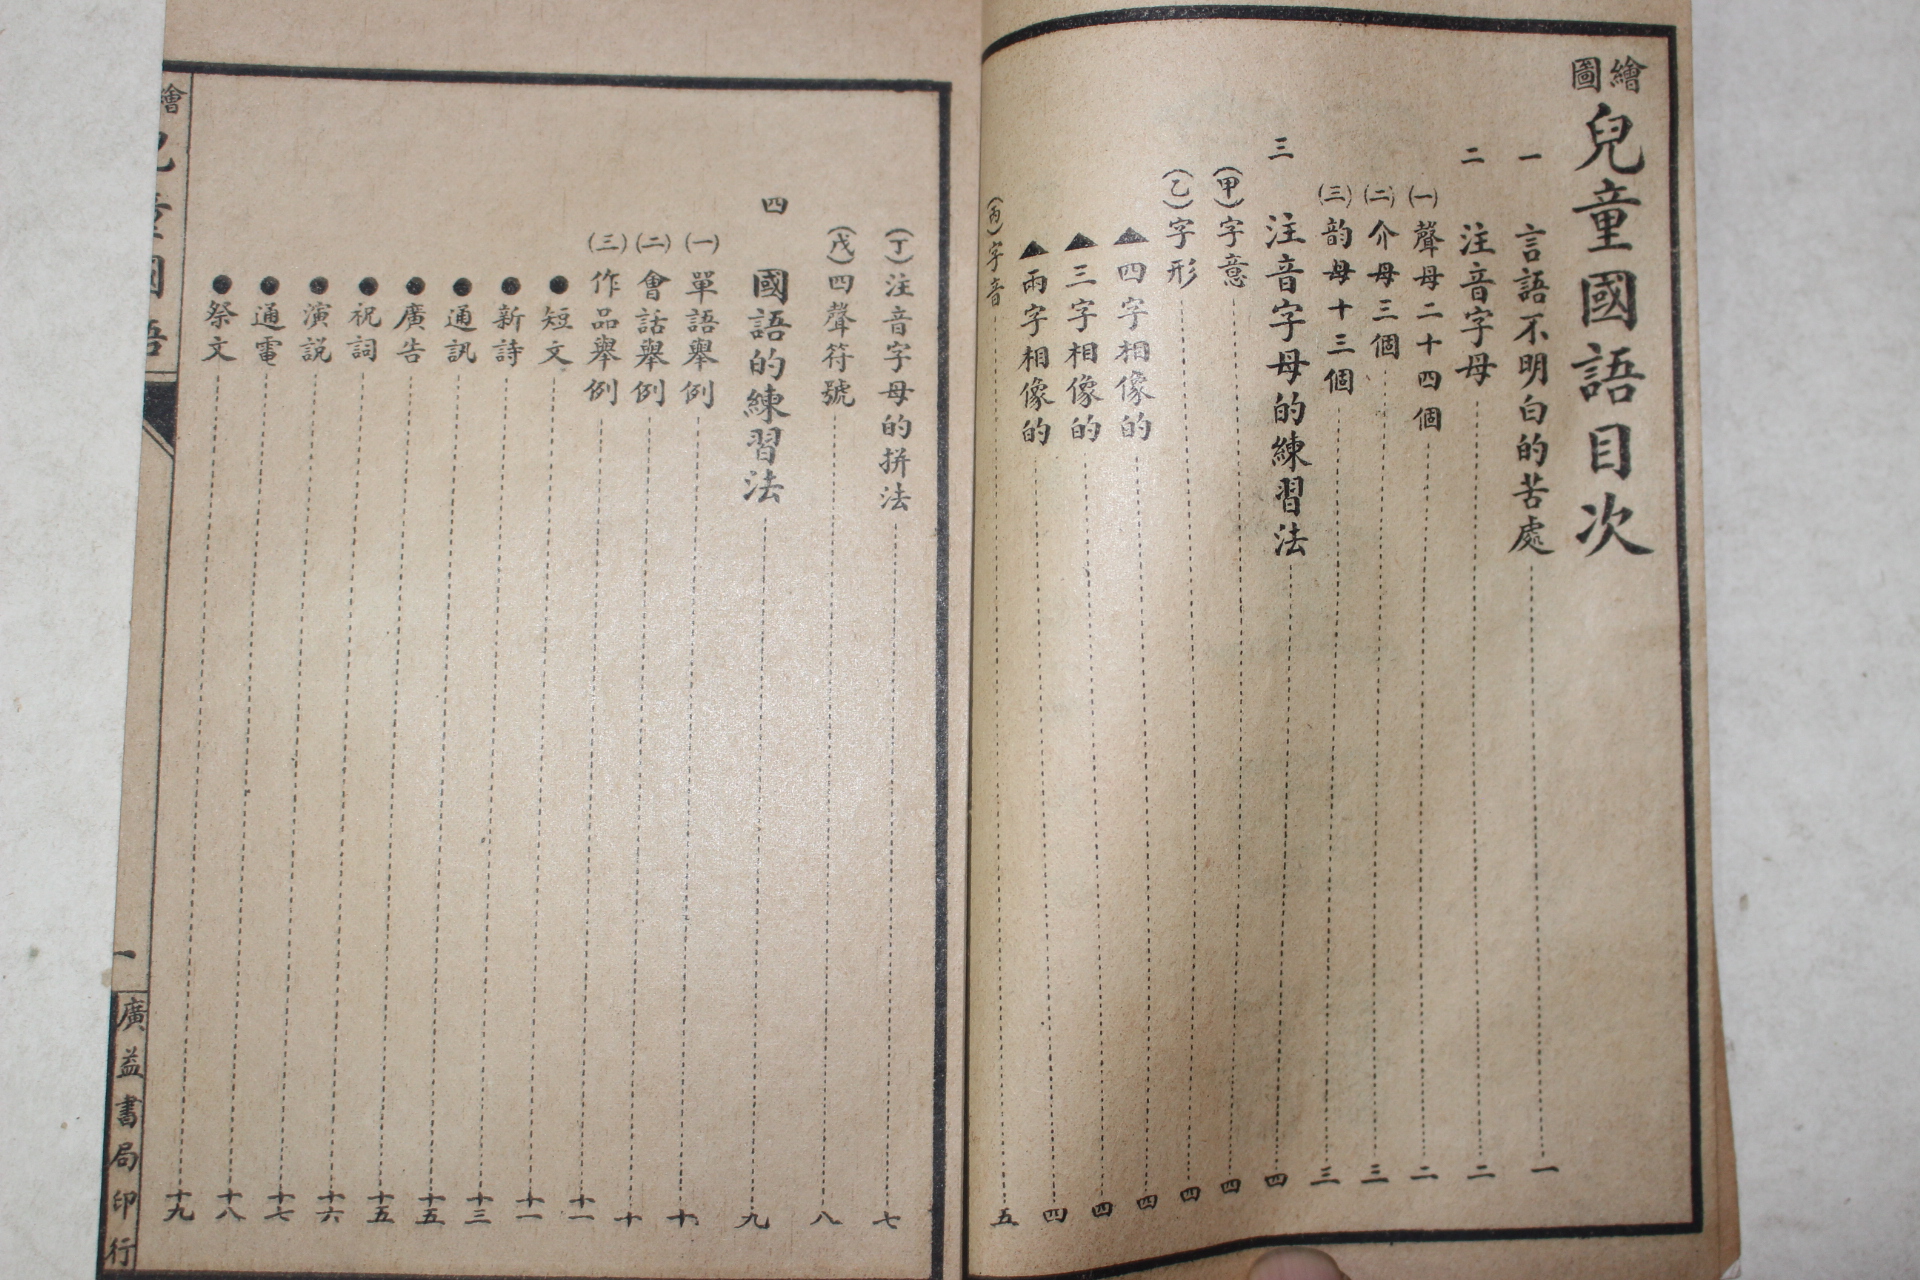 繪圖兒童國語目次
一 言語不明白的苦處 一
二 注音字母 二
(一)聲母二十四個 二
(二)介母三個 三
(三)韵母十三個 三
三 注音字母的練習法 四
(甲)字意 四
(乙)字形 四
▲四字相像的 四
▲三字相像的 四
▲兩字相像的 四
(丙)字音 五
(丁)注音字母的拼法 七
(戊)四聲符號 八
四 國語的練習法 九
(一)單語舉例 十
(二)會話舉例 十
(三)作品舉例 十一
●短文 十一
●新詩 十三
●通訊 十五
●廣告 十五
●祝詞 十六
●演説 十七
●通電 十八
●祭文 十九
繪 兒童國語
一
廣益書局印行